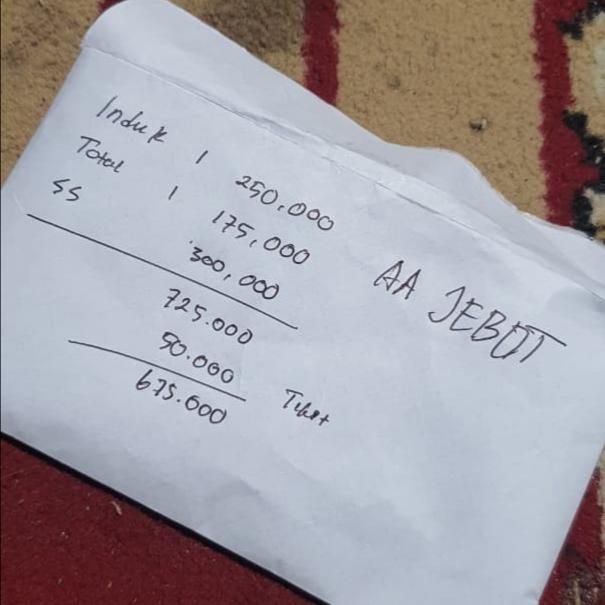 Induk 1 250,000
Total 1 175,000
SS 300,000
725.000
50.000 Tiket
675.000
AA JEBOT